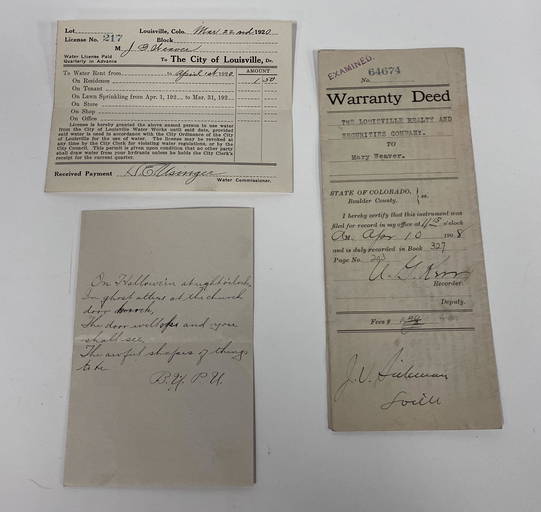 Lot
Louisville, Colo. Mar. 22nd 1920
License No. 217
Block
M J. B. Weaver
Water License Paid
Quarterly in Advance
To The City of Louisville, Dr.
To Water Rent from to April 1st 1920
AMOUNT
On Residence 1.50
On Tenant
On Lawn Sprinkling from Apr. 1, 192... to Mar. 31, 192...
On Store
On Shop
On Office
License is hereby granted the above named person to use water
from the City of Louisville Water Works until said date, provided
said water is used in accordance with the City Ordinance of the City
of Louisville for the use of water. The license may be revoked at
any time by the City Clerk for violating water regulations, or by the
City Council. This permit is given upon condition that no other party
shall draw water from your hydrants unless he holds the City Clerk's
receipt for the current quarter.
Received Payment
Water Commissioner.
On Hallowe'en at eight o'clock,
In ghost attire at the church
door knock,
The door will open and you
shall see,
The awful shapes of things
to be
B. Y. P. U.
EXAMINED.
64674
No.
Warranty Deed
THE LOUISVILLE REALTY AND
SECURITIES COMPANY.
TO
Mary Weaver.
STATE OF COLORADO,
Boulder County. ss.
I hereby certify that this instrument was
filed for record in my office at o'clock
Apr 10 1908
and is duly recorded in Book 327
Page No.
Recorder.
Deputy.
Fees $